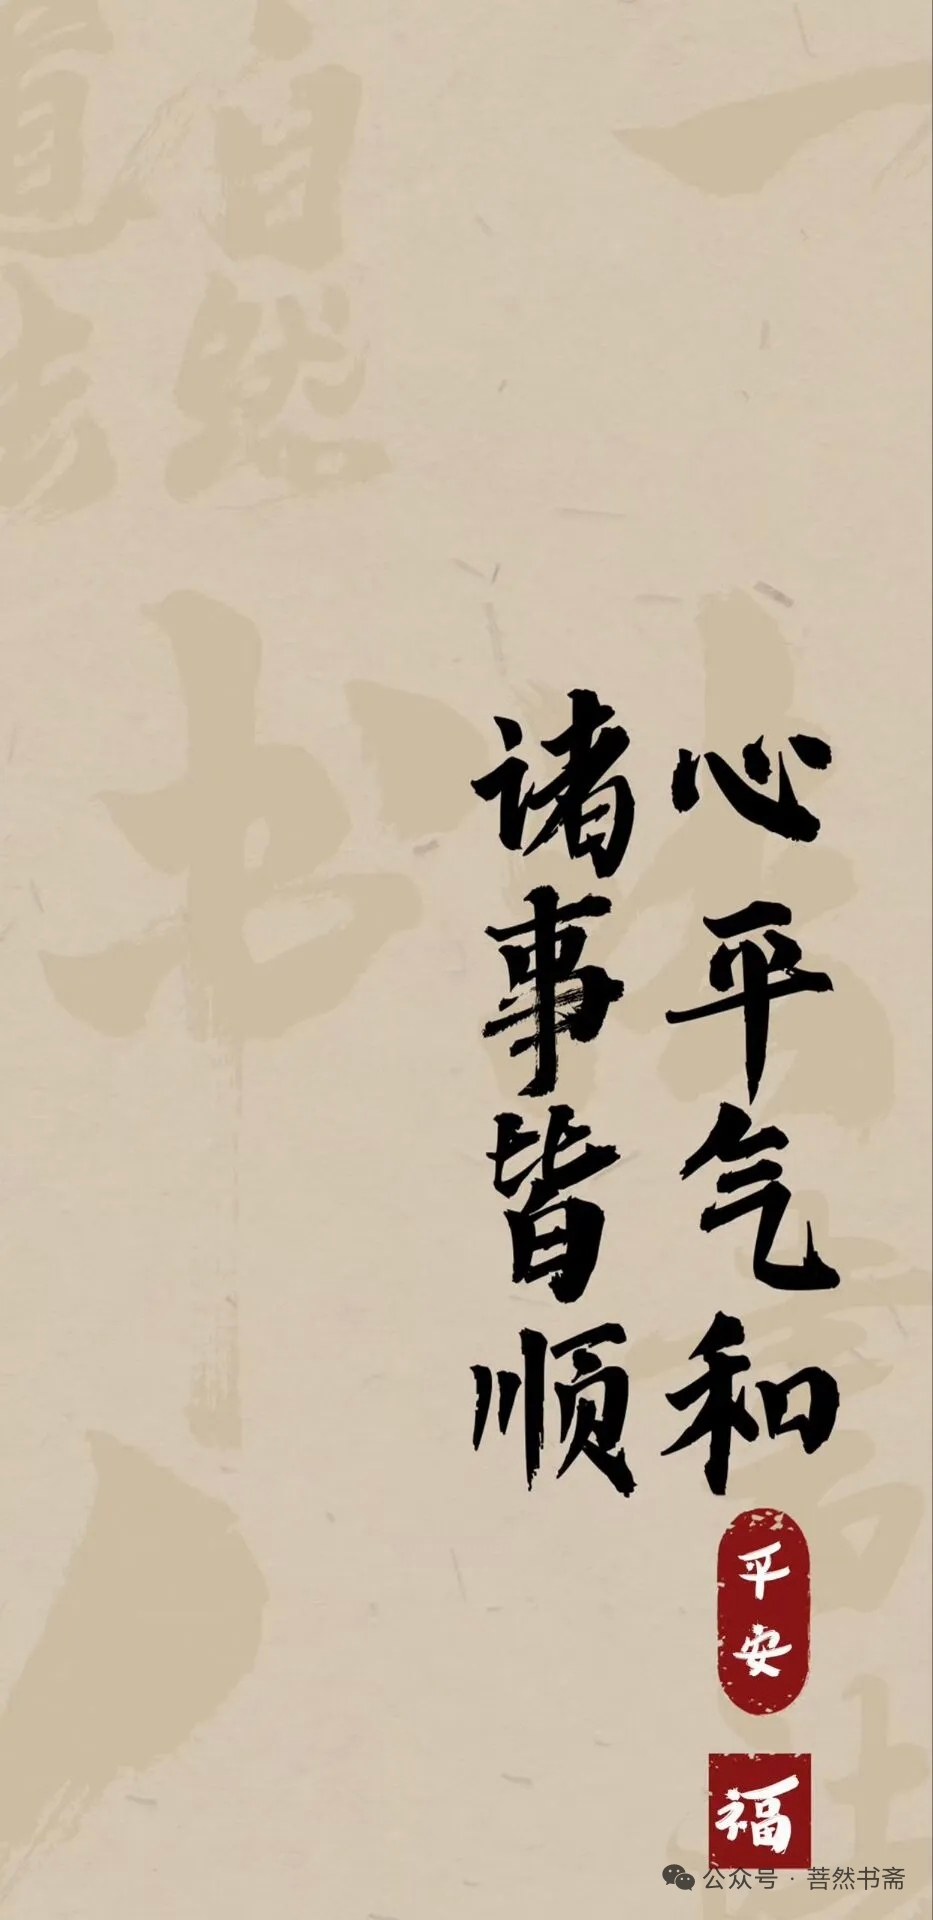 心平气和
诸事皆顺
平安
福
公众号·菩然书斋
自然
书